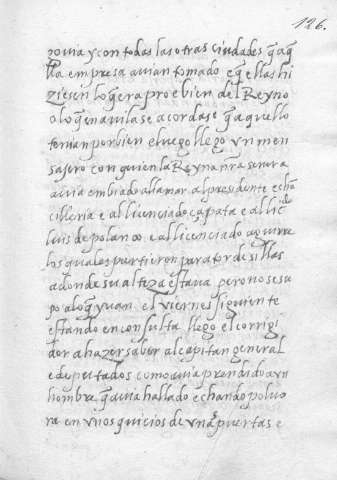 126.
govia y con todas las otras ciudades q̃ aq̃
lla empresa avian tomado e q̃ ellas hi
ziesen lo q̃ era pro e bien del Reyno
o lo q̃ en avila se acordase q̃ aquello
ternian por bien e luego llego vn men
sajero con quien la Reyna nr̃a señora
avia embiado a llamar al presidente e chã
cilleria e al licenciado çapata e al licdo
luis de polanco e al licenciado aguirre
los quales partieron para tordesillas
adonde su alteza estava pero no se su
po a lo q̃ yvan el viernes siguiente
estando en consulta llego el corregi
dor a hazer saber al capitan general
e deputados como avia prendido a vn
hombre q̃ avia hallado echando polvo
ra en vnos quicios de vnas puertas e